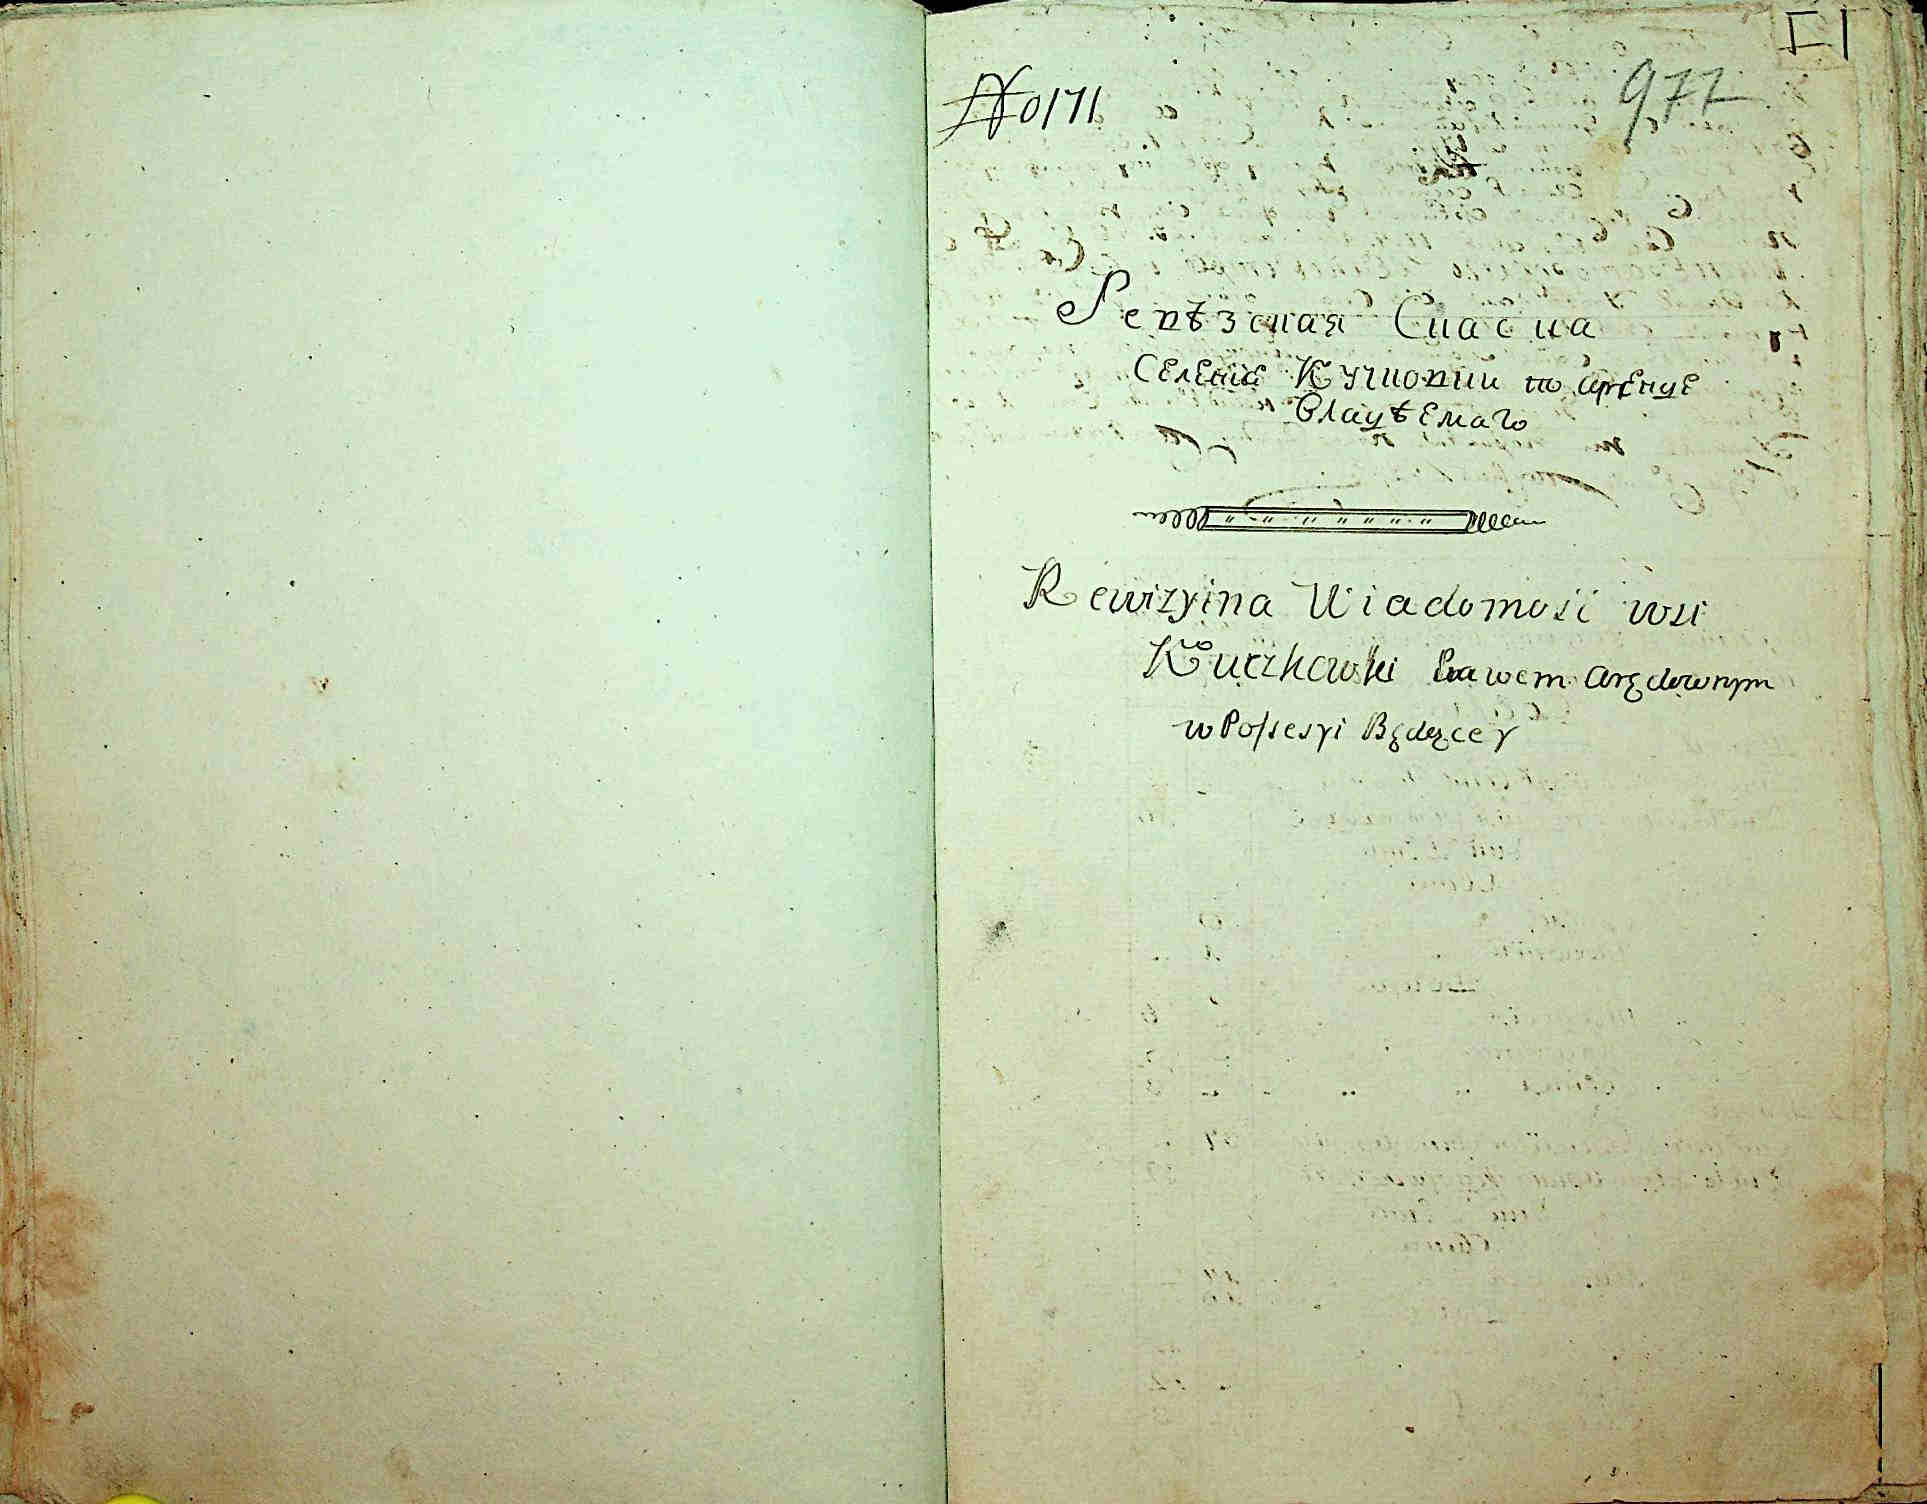 № 0171
972
Ревѣзская Сказка
Селенія Кучковки по аренде
Владѣемаго
Rewizyina Wiadomość wsi
Kuczkowki Prawem Arędownym
w Possesyi Będącey